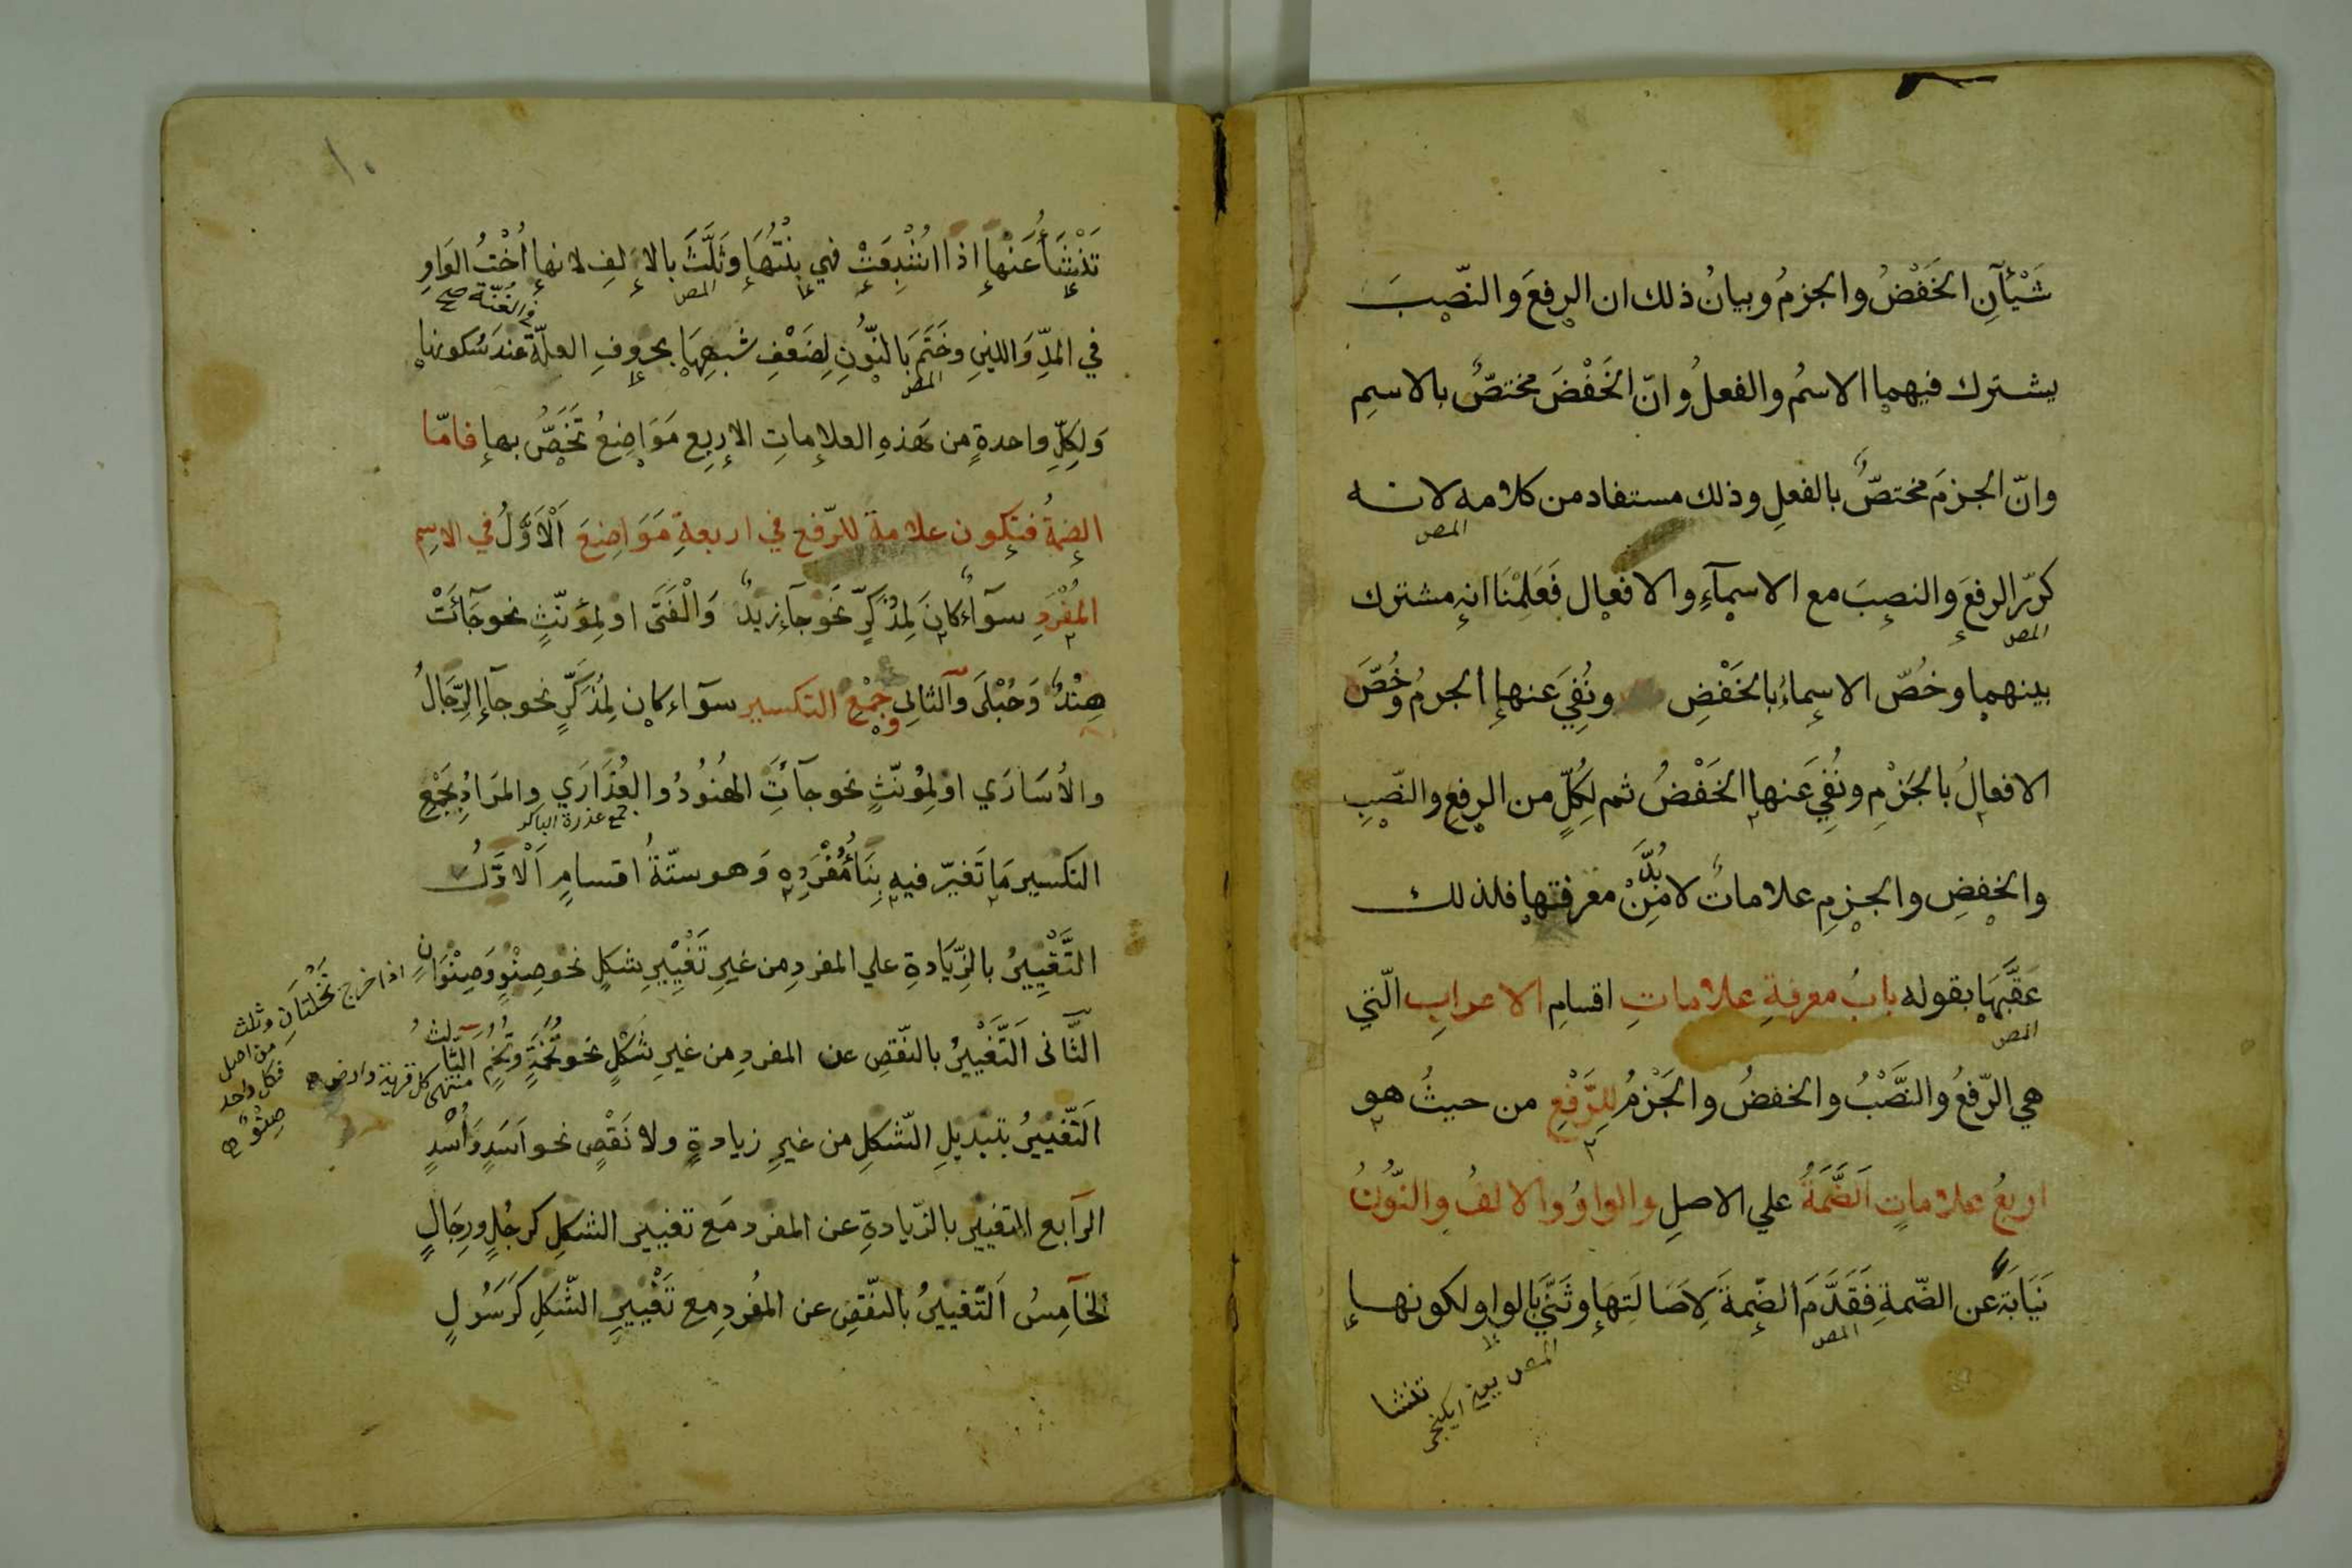 شَيْأآنِ الخَفْضُ والجزمُ وبيانُ ذلك ان الرفعَ والنّصبَ
يشترك فيهما الاسمُ والفعلُ وانّ الخَفْضَ مختصٌّ بالاسمِ
وانّ الجزمَ مختصٌّ بالفعلِ وذلك مستفاد من كلامه لانه
المص
كرّر الرفعَ والنصبَ مع الاسمآءِ والافعال فَعَلِمْنَا انه مشترك
المص
بينهما وخصّ الاسماءُ بالخَفْضِ ونُفِيَ عنها الجزمُ وخُصَّ
الافعالُ بالجَزْمِ ونُفِيَ عنها الخَفْضُ ثم لِكُلٍّ من الرفعِ والنّصبِ
والخفضِ والجزمِ علاماتٌ لا بُدَّ مِنْ معرفتها فلذلك
عَقَّبَهَا بقوله بابُ معرفةِ علاماتِ اقسامِ الاعرابِ الّتي
المص
هي الرّفعُ والنَّصْبُ والخفضُ والجَزْمُ لِلرَّفْعِ من حيثُ هو
اربعُ علاماتٍ اَلضَّمَّةُ علي الاصلِ والواوُ والالفُ والنُّونُ
نَيَابَةً عن الضّمةِ فَقَدَّمَ الضّمةَ لِاَصَالَتِهَا وثَنَّىَ بالواو لكونها
المص
تنشا
تَنْشَأُ عَنْها اذا اشْبِعَتْ فهي بِنْتُهَا وثَلَّثَ بالالف لانها اُخْتُ الوَاوِ
المص
في المدِّ وَاللينِ وخَتَمَ بَالنّونِ لِضَعْفِ شبهِهَا بحروفِ العلّةِ عندَ سُكونها
في الغُنّة صح
المص
وَلِكلِّ واحدةٍ من هَذهِ العلاماتِ الاربعِ مَوَاضِعُ تَخَصُّ بها فامّا
الضمةُ فتكون علامة للرّفع في اربعةِ مَوَاضِعَ اَلْاَوَّلُ في الاسِم
المُفْرَدِ سوآءٌ كانَ لِمُذَكَّرٍ نَحْوَ جآء زيدٌ وَالْفَتَى او لِمُؤنّثٍ نحو جَآئَتْ
هِنْدٌ وَحُبْلَى وَالثاني جَمْعِ التكسير سوآء كان لِمُذَكَّرٍ نحو جآءالرِّجَالُ
والاُسَارَي او لِمُؤنّثٍ نحو جآئَتِ الهُنُودُ والعُذَارَي والمَرَادُ بِجَمْعِ
جمع عذرة الباكر
التكسير مَا تَغيّر فيه بِنَاءُ مُفْرَدِهِ وَهو ستّةُ اقسامٍ اَلْاَوَّلُ
التَّغْيِيرُ بالزّيَادةِ علي المفردِ من غيرِ تَغْيِيرِ شكلٍ نحو صِنْوٍ وَصِنْوَانٍ
اذا خرج نَخْلَتَانِ وثلث من اصل فكل واحد صِنْوٌ
الثَّانى اَلتَّغْيِيرُ بالنّقصِ عن المفردِ من غيرِ شَكْلٍ نحو تُخَمَةٍ وتُخَمٍ اَلثَّالثُ
منتهى كل قرية وارض
اَلتَّغْيِيرُ بتبديلِ الشّكلِ من غيرِ زيادةٍ ولا نَقْصٍ نحو اَسَدٍ وَاُسْدٍ
الرّابع التغيير بالزّيادةِ عن المفرد مَع تغيير الشكلِ كرجُلٍ ورِجَالٍ
الخآمِسُ اَلتَّغْيِيرُ بالنّقصِ عن المُفْرَدِ مع تَغْيِيرِ الشّكلِ كَرَسُولٍ